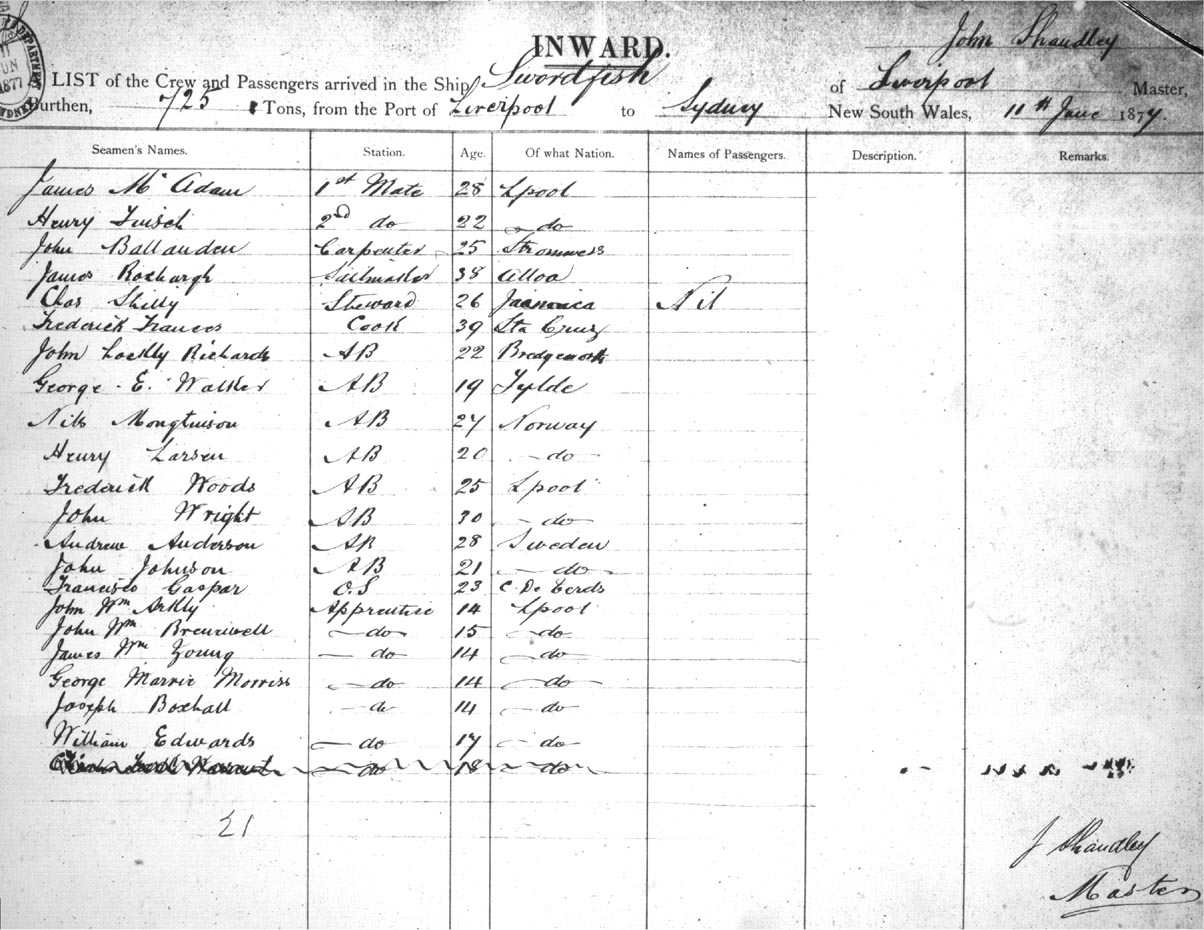 John Shaudley
INWARD.
A LIST of the Crew and Passengers arrived in the Ship Swordfish of Liverpool Master,
Burthen, 725 Tons, from the Port of Liverpool to Sydney New South Wales, 11th June 1877.
Seamen's Names. Station. Age. Of what Nation. Names of Passengers. Description. Remarks.
James Mc Adam 1st Mate 28 Lpool
Henry 2nd do 22 do
John Ballanden Carpenter 25 Stromness
James Roxburgh Sailmaker 38 Alloa
Chas Shilly Steward 26 Jamaica Nil
Frederick Frances Cook 39 Sta Cruz
John Lockly Richards AB 22 Bridgenorth
George E. Walker AB 19 Fylde
Nils AB 27 Norway
Henry Larsen AB 20 do
Frederick Woods AB 25 Lpool
John Wright AB 30 do
Andrew Anderson AB 28 Sweden
John Johnson AB 21 do
Francisco Gaspar O.S 23 C. De Verds
John Wm Arkly Apprentice 14 Lpool
John Wm do 15 do
James Wm Young do 14 do
George Marrie Morriss do 14 do
Joseph Boxhall do 14 do
William Edwards do 17 do
do 18 do
21
J Shaudley
Master